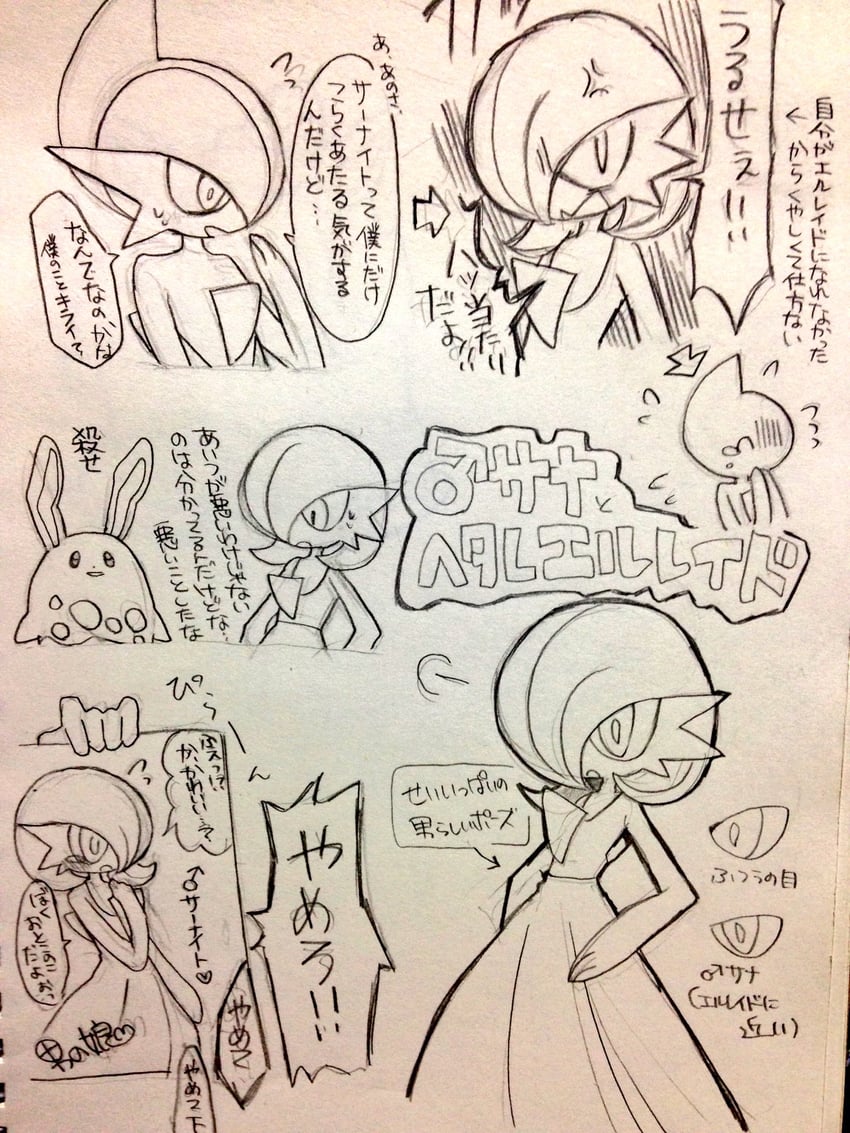 自分がエルレイドになれなかった
からくやしくて仕方ない
うるせぇ!!!
だよ!!!
あ、あのさ、
サーナイトって僕にだけ
つらくあたる気がする
んだけど…
なんでなのかな
僕のことキライ?
♂サナと
ヘタレエルレイド
あいつが悪いわけじゃない
のは分かってるんだけどな…
悪いことしたな
殺せ
ぴらーん
えっ!?
か、かわいい…?
♂サーナイト♡
ぼく
おとこのこ
だよぉっ
男の娘
やめろ!!!
やめて
やめて下
せいいっぱいの
男らしいポーズ
ふつうの目
♂サナ
(エルレイドに
近い)